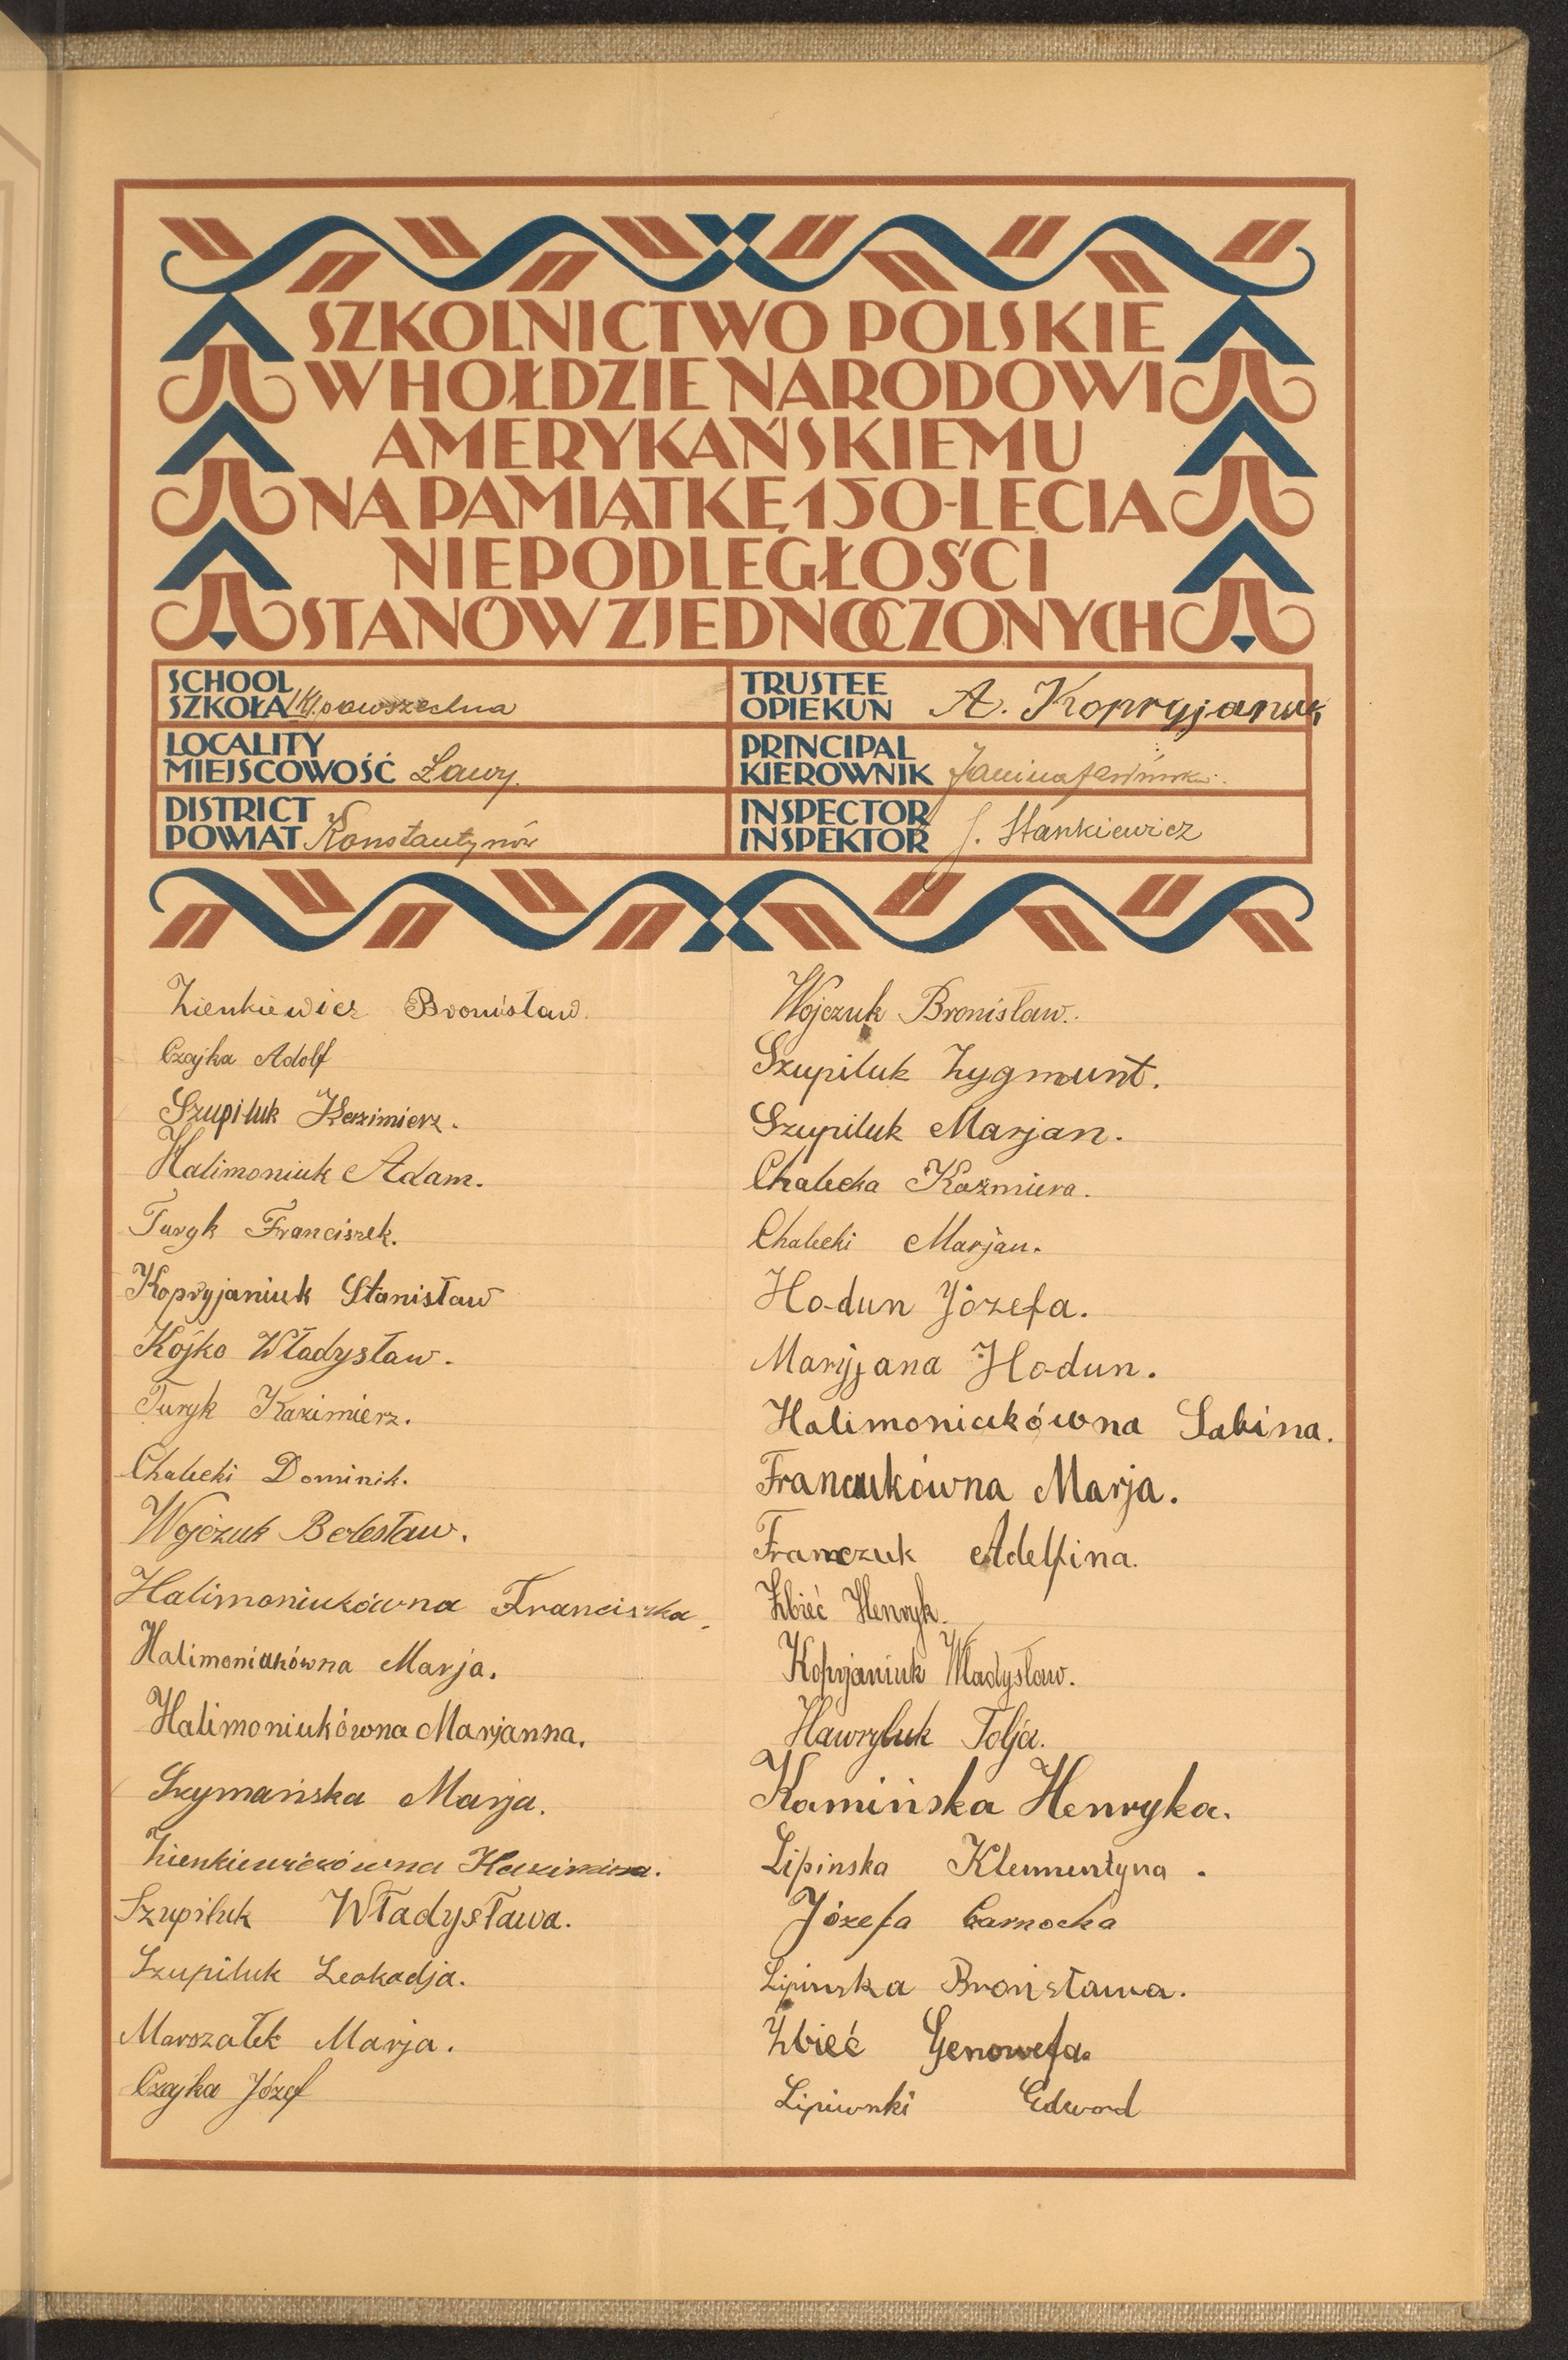 SZKOLNICTWO POLSKIE
W HOŁDZIE NARODOWI
AMERYKAŃSKIEMU
NA PAMIĄTKĘ 150-LECIA
NIEPODLEGŁOŚCI
STANÓW ZJEDNOCZONYCH
SCHOOL
SZKOŁA 1 Kl. powszechna
TRUSTEE
OPIEKUN A. Kopryjaniuk
LOCALITY
MIEJSCOWOŚĆ Ławy
PRINCIPAL
KIEROWNIK Janina
DISTRICT
POWIAT Konstantynów
INSPECTOR
INSPEKTOR J. Stankiewicz
Zienkiewicz Bronisław.
Czajka Adolf
Szupiluk Kazimierz.
Halimoniuk Adam.
Turyk Franciszek.
Kopryjaniuk Stanisław
Kójko Władysław.
Turyk Kazimierz.
Chalecki Dominik.
Wojczuk Bolesław.
Halimoniukówna Franciszka.
Halimoniukówna Marja.
Halimoniukówna Marjanna.
Szymańska Marja.
Zienkiewiczówna Kazimiera.
Szupiluk Władysława.
Szupiluk Leokadja.
Marszałek Marja.
Czajka Józef
Wojczuk Bronisław.
Szupiluk Zygmunt.
Szupiluk Marjan.
Chalecka Kazmiera.
Chalecki Marjan.
Hodun Józefa.
Maryjana Hodun.
Halimoniukówna Sabina.
Franczukówna Marja.
Franczuk Adelfina.
Zbieć Henryk.
Kopryjaniuk Władysław.
Hawryluk Tolja.
Kamińska Henryka.
Lipinska Klementyna.
Józefa Carnocka
Lipinska Bronisława.
Zbieć Genowefa.
Lipiwnki Edword